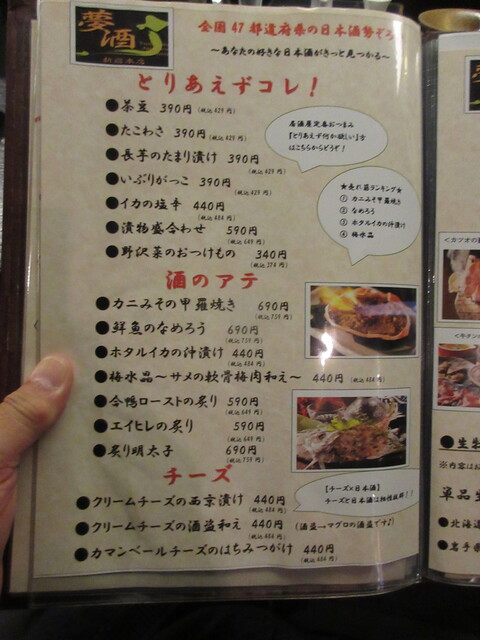 夢酒
新宿本店
全国47都道府県の日本酒勢ぞろ
～あなたの好きな日本酒がきっと見つかる～
とりあえずコレ！
●茶豆 390円 (税込429円)
●たこわさ 390円 (税込429円)
●長芋のたまり漬け 390円 (税込429円)
●いぶりがっこ 390円 (税込429円)
●イカの塩辛 440円 (税込484円)
●漬物盛合わせ 590円 (税込649円)
●野沢菜のおつけもの 340円 (税込374円)
居酒屋定番おつまみ
『とりあえず何か欲しい』方
はこちらからどうぞ！
★売れ筋ランキング★
① カニみそ甲羅焼き
② なめろう
③ ホタルイカの沖漬け
④ 梅水晶
酒のアテ
●カニみその甲羅焼き 690円 (税込759円)
●鮮魚のなめろう 690円 (税込759円)
●ホタルイカの沖漬け 440円 (税込484円)
●梅水晶～サメの軟骨梅肉和え～ 440円 (税込484円)
●合鴨ローストの炙り 590円 (税込649円)
●エイヒレの炙り 590円 (税込649円)
●炙り明太子 690円 (税込759円)
チーズ
【チーズ×日本酒】
チーズと日本酒は相性抜群！！
●クリームチーズの西京漬け 440円 (税込484円)
●クリームチーズの酒盗和え 440円 (税込484円) (酒盗→マグロの酒盗です♪)
●カマンベールチーズのはちみつがけ 440円 (税込484円)
<カツオの
<牛タン
●生牡
※内容はお
単品生
●北海道
●岩手県